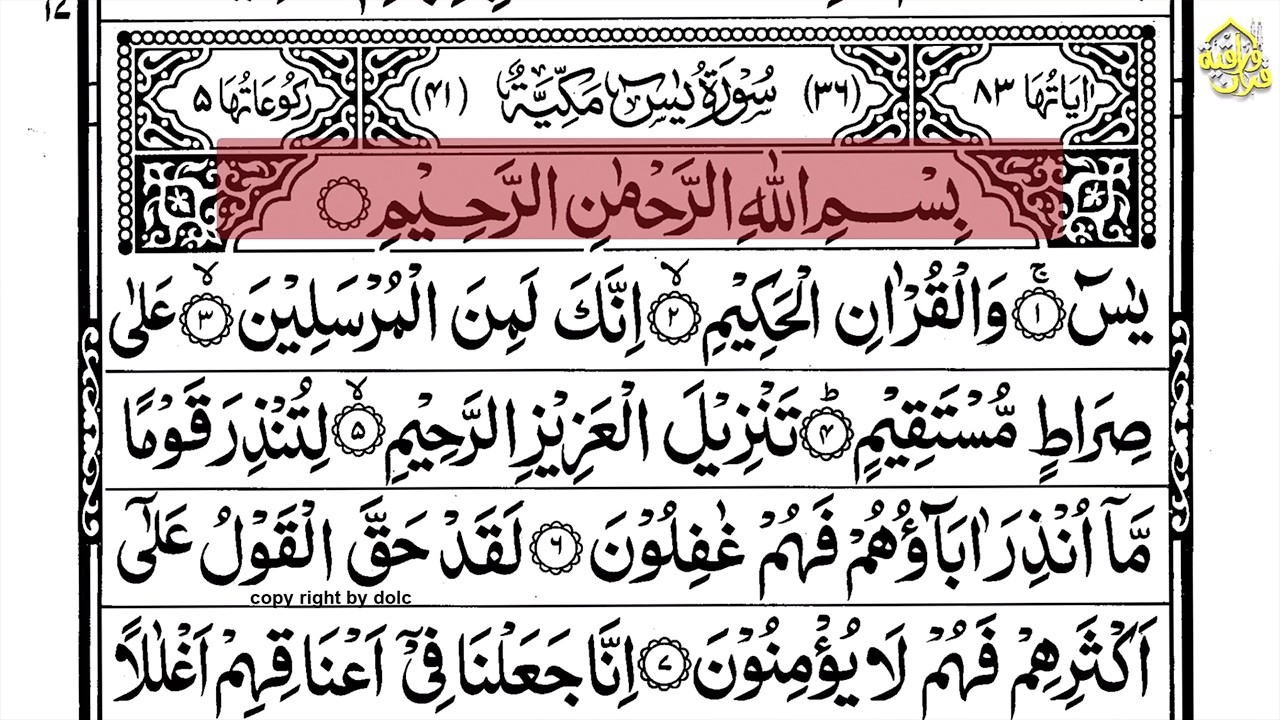 اٰيَاتُهَا ٨٣ (٣٦) سُوْرَةُ يٰسٓ مَكِّيَّةٌ (٤١) رُكُوْعَاتُهَا ٥
بِسْمِ اللّٰهِ الرَّحْمٰنِ الرَّحِيْمِ
يٰسٓ ۚ ١ وَالْقُرْاٰنِ الْحَكِيْمِ ۙ ٢ اِنَّكَ لَمِنَ الْمُرْسَلِيْنَ ۙ ٣ عَلٰى
صِرَاطٍ مُّسْتَقِيْمٍ ؕ ٤ تَنْزِيْلَ الْعَزِيْزِ الرَّحِيْمِ ۙ ٥ لِتُنْذِرَ قَوْمًا
مَّاۤ اُنْذِرَ اٰبَآؤُهُمْ فَهُمْ غٰفِلُوْنَ ٦ لَقَدْ حَقَّ الْقَوْلُ عَلٰٓى
copy right by dolc
اَكْثَرِهِمْ فَهُمْ لَا يُؤْمِنُوْنَ ٧ اِنَّا جَعَلْنَا فِيْۤ اَعْنَاقِهِمْ اَغْلٰلًا